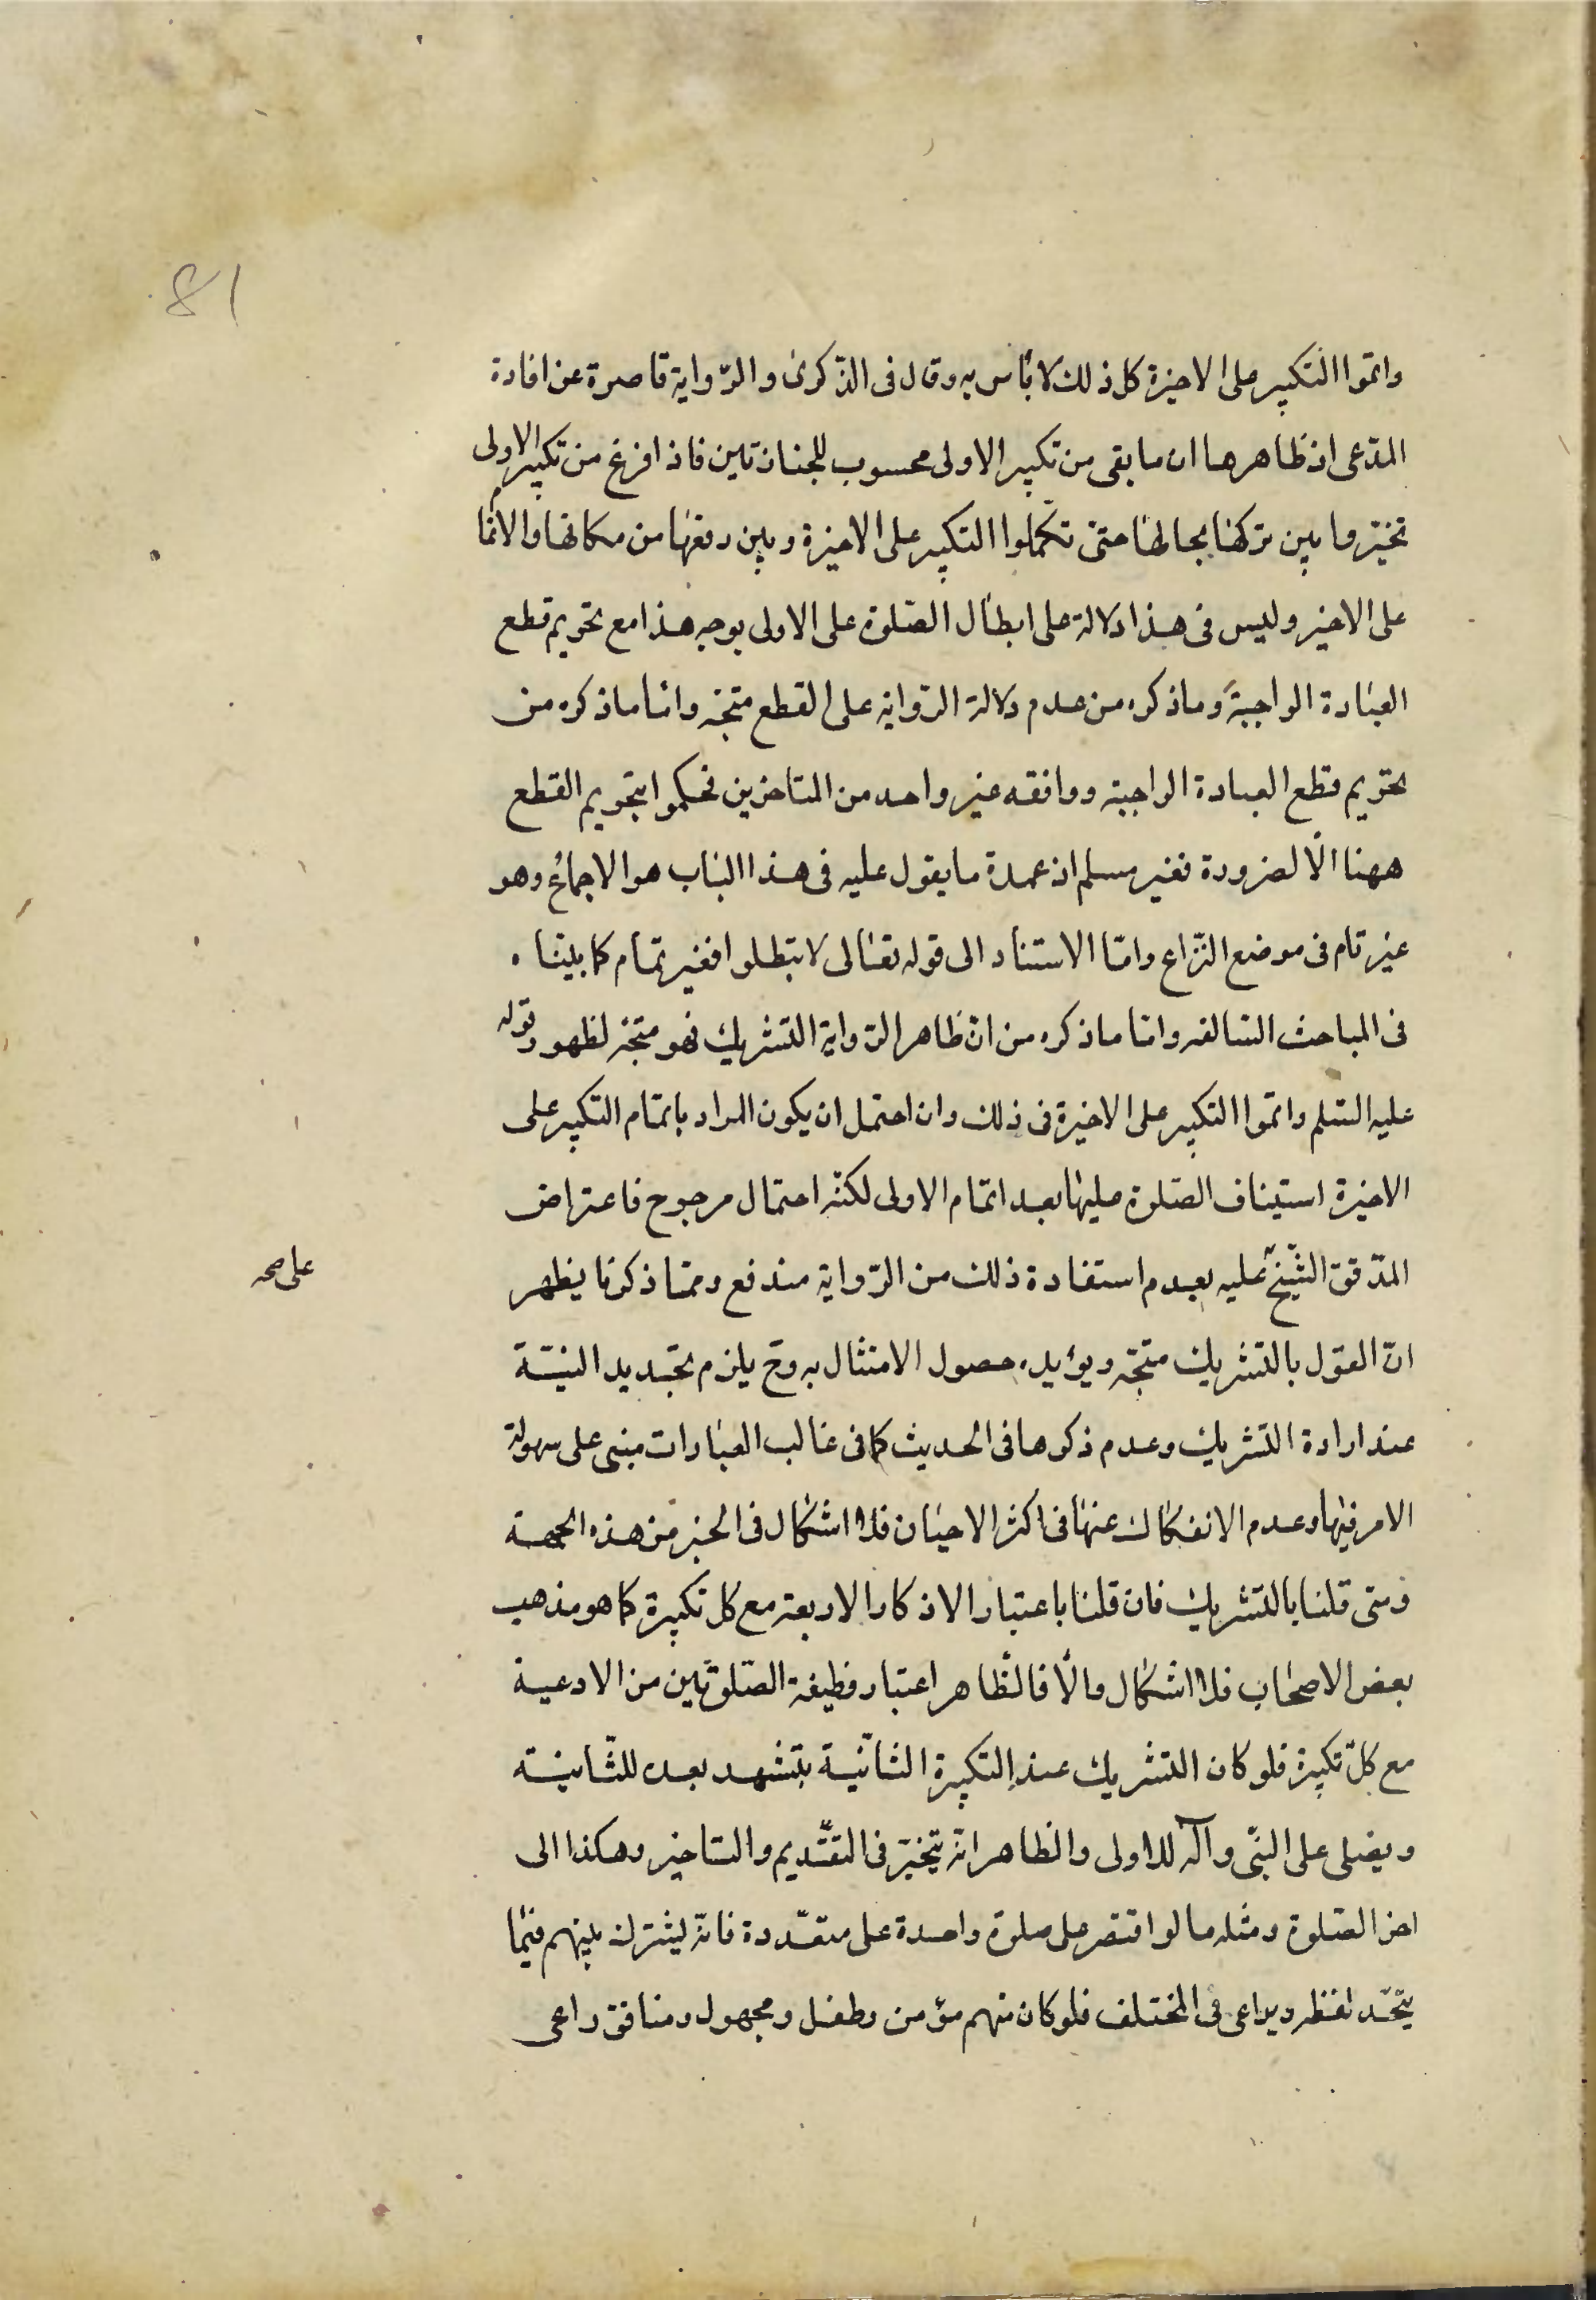 81
واتموا التكبير على الاخيرة كل ذلك لا بأس به وقال فى الذكرى والرّواية قاصرة عن افادة
المدّعى اذ ظاهرها ان ما بقى من تكبير الاولى محسوب للجنازتين فاذا فرغ من تكبير الاولى
تخيّروا بين تركها بحالها حتى تكملوا التكبير على الاخيرة وبين رفعها من مكانها والاتمام
على الاخير وليس فى هذا دلالة على ابطال الصّلوة على الاولى بوجه هذا مع تحريم قطع
العبادة الواجبة وما ذكره من عدم دلالة الرّواية على القطع متجه وامّا ما ذكره من
تحريم قطع العبادة الواجبة ووافقه غير واحد من المتاخرين فحكموا بتحريم القطع
ههنا الّا لضرورة فغير مسلم اذ عمدة ما يقول عليه فى هذا الباب هو الاجماع وهو
غير تام فى موضع النّزاع وامّا الاستناد الى قوله تعالى لا تبطلوا فغير تمام كما بيّنا
فى المباحث السّالفه وامّا ما ذكره من انّ ظاهر الرّواية التشريك فهو متجه لظهور قوله
عليه السّلم واتموا التكبير على الاخيرة فى ذلك وان احتمل ان يكون المراد باتمام التكبير على
الاخيرة استيناف الصّلوة عليها بعد اتمام الاولى لكنّه احتمال مرجوح فاعتراض
المدّقق الشّيخ علیه بعدم استفادة ذلك من الرّواية مندفع وممّا ذكرنا يظهر
على صحه
انّ القول بالتشريك متجّه ويؤيده حصول الامتثال به وح يلزم تجديد النيّة
عند ارادة التشريك وعدم ذكرها فى الحديث كما فى غالب العبادات مبنى على سهولة
الامر فيها وعدم الانفكاك عنها فى اكثر الاحيان فلا اشكال فى الخبر من هذه الجهة
ومتى قلنا بالتشريك فان قلنا باعتبار الاذكار الاربعة مع كل تكبيرة كما هو مذهب
بعض الاصحاب فلا اشكال والّا فالظّاهر اعتبار وظيفة الصّلوتين من الادعية
مع كلّ تكبيرة فلو كان التشريك عند التكبيرة الثانية يتشهد بعده للثّانية
ويصلى على النبّى وآله للاولى والظاهر انه يتخيّر فى التقديم والتاخير وهكذا الى
اخر الصّلوة ومثله ما لو اقتصر على صلوة واحدة على متعدّدة فانه يشترك بينهم فيما
يتّحد لفظه ويراعى فى المختلف فلو كان منهم مؤمن وطفل ومجهول ومنافق راعى